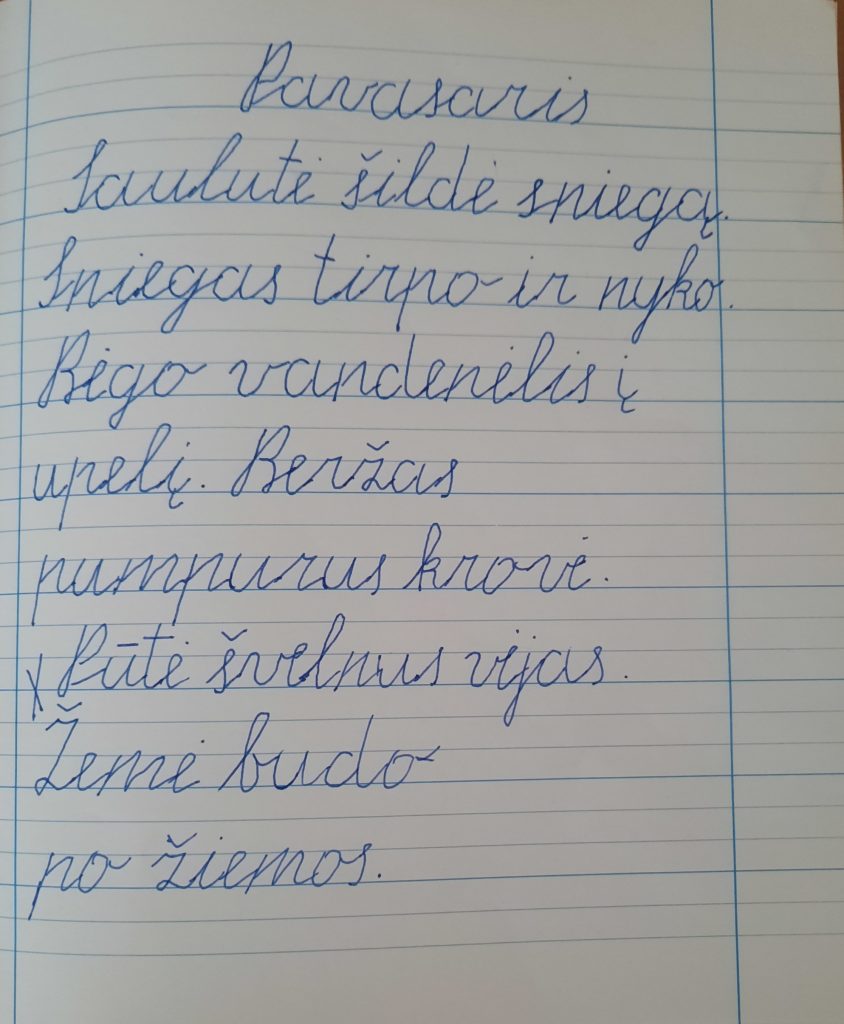 Pavasaris
Saulutė šildė sniegą.
Sniegas tirpo ir nyko.
Bėgo vandenėlis į
upelį. Beržas
pumpurus krovė.
Pūtė švelnus vėjas.
Žemė budo
po žiemos.